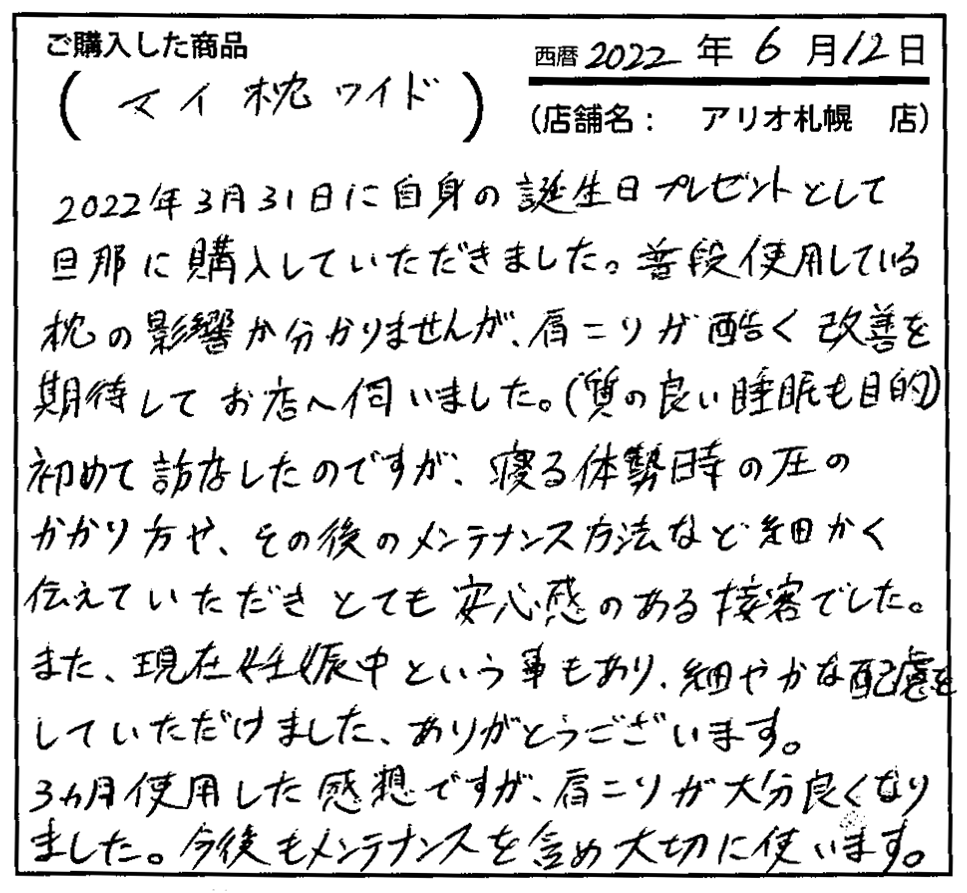 ご購入した商品
(マイ枕ワイド)
西暦 2022 年 6 月 12 日
(店舗名: アリオ札幌 店)
2022年3月31日に自身の誕生日プレゼントとして
旦那に購入していただきました。普段使用している
枕の影響か分かりませんが、肩こりが酷く改善を
期待してお店へ伺いました。(質の良い睡眠も目的)
初めて訪店したのですが、寝る体勢時の圧の
かかり方や、その後のメンテナンス方法など細かく
伝えていただきとても安心感のある接客でした。
また、現在妊娠中という事もあり、細やかな配慮を
していただけました、ありがとうございます。
3ヵ月使用した感想ですが、肩こりが大分良くなり
ました。今後もメンテナンスを含め大切に使います。